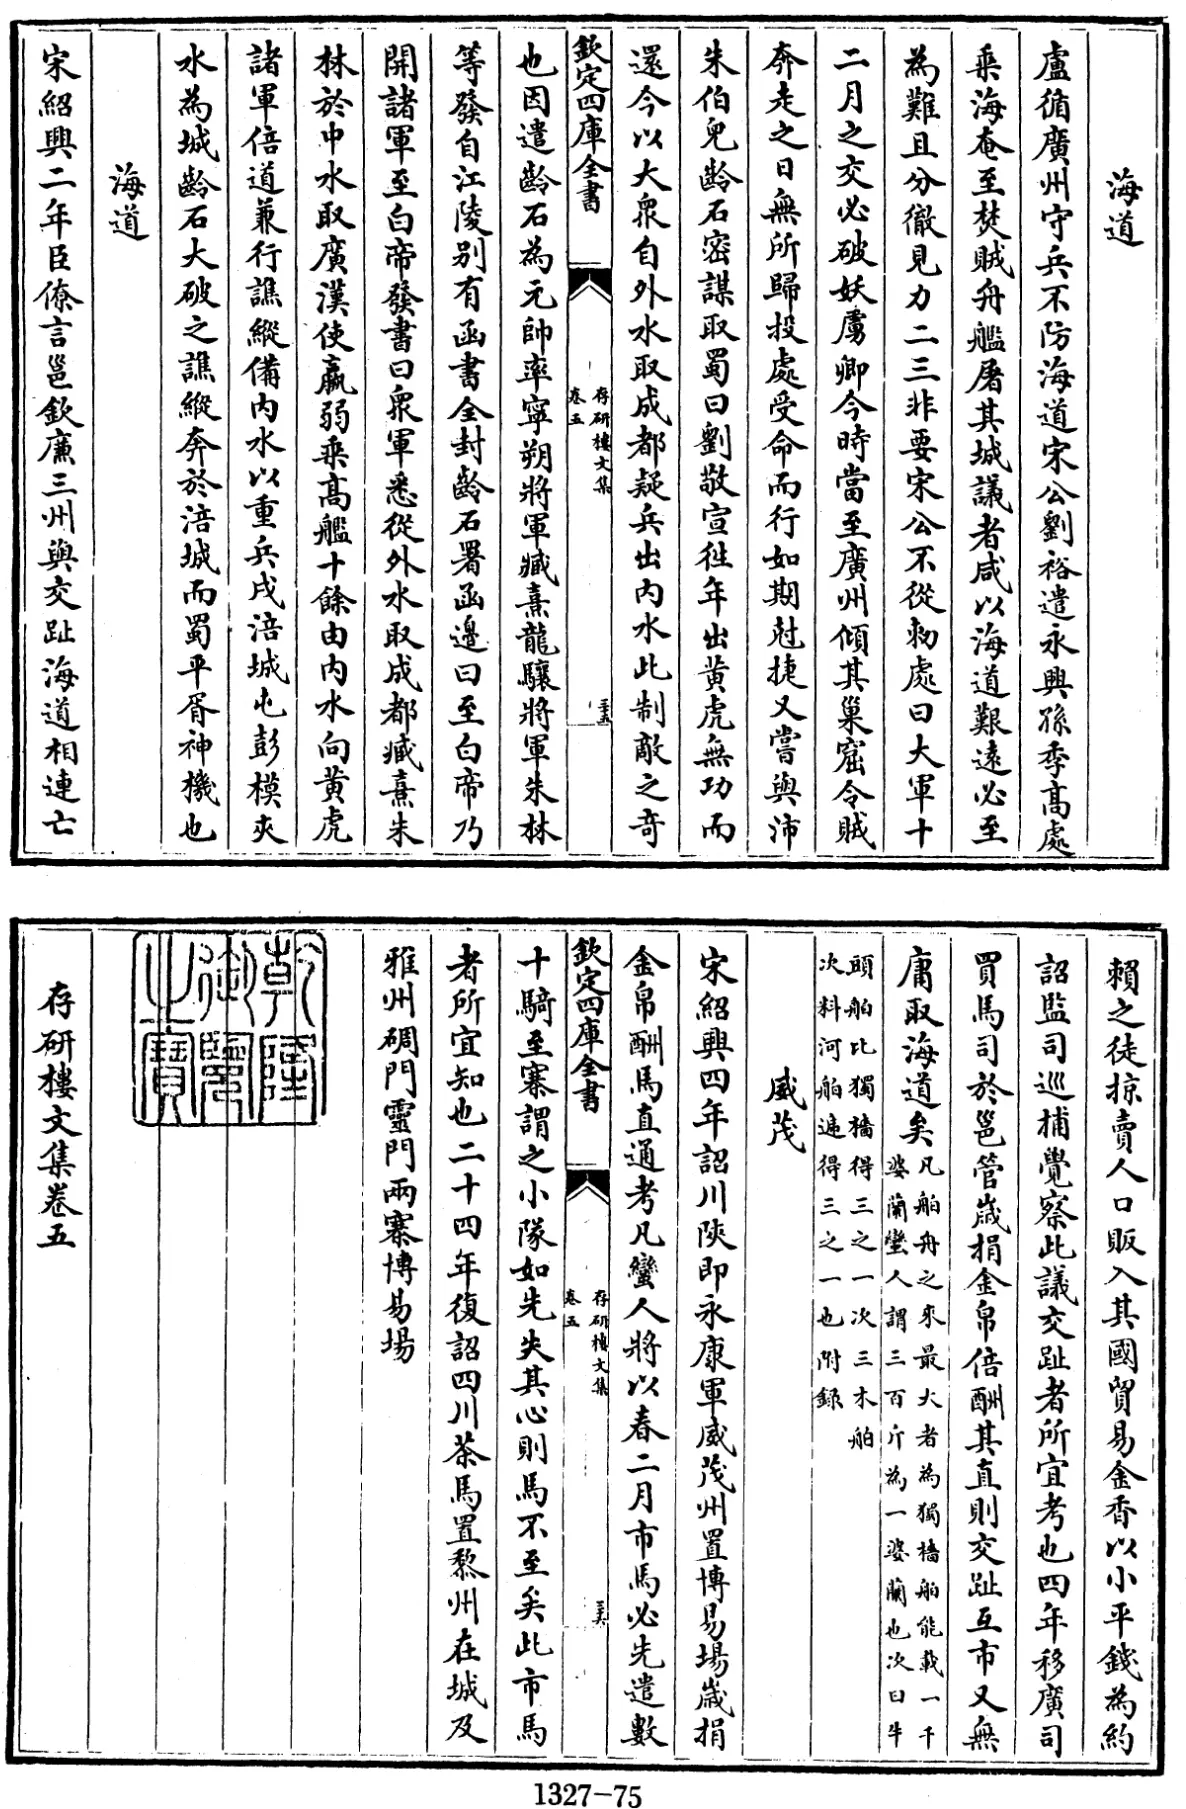 海道
盧循廣州守兵不防海道宋公劉裕遣永興孫季高處
乘海奄至焚賊舟艦屠其城議者咸以海道艱遠必至
為難且分徹見力二三非要宋公不從勑處曰大軍十
二月之交必破妖虜卿今時當至廣州傾其巢窟令賊
奔走之日無所歸投處受命而行如期尅捷又嘗與沛
朱伯兒齡石密謀取蜀曰劉敬宣徃年出黄虎無功而
還今以大衆自外水取成都疑兵出内水此制敵之竒
欽定四庫全書
存研樓文集
卷五
三五
也因遣齡石為元帥率寧朔將軍臧熹龍驤將軍朱林
等發自江陵别有函書全封齡石署函邊曰至白帝乃
開諸軍至白帝發書曰衆軍悉從外水取成都臧熹朱
林於中水取廣漢使羸弱乘高艦十餘由内水向黄虎
諸軍倍道兼行譙縱備内水以重兵戍涪城屯彭模夾
水為城齡石大破之譙縱奔於涪城而蜀平胥神機也
海道
宋紹興二年臣僚言邕欽廉三州與交趾海道相連亡
賴之徒掠賣人口販入其國貿易金香以小平錢為約
詔監司巡捕覺察此議交趾者所宜考也四年移廣司
買馬司於邕管歲捐金帛倍酬其直則交趾互市又無
庸取海道矣凡舶舟之來最大者為獨檣舶能載一千
婆蘭蠻人謂三百斤為一婆蘭也次曰牛
頭舶比獨檣得三之一次三木舶
次料河舶遞得三之一也附録
威茂
宋紹興四年詔川陜即永康軍威茂州置博易場歲捐
金帛酬馬直通考凡蠻人將以春二月市馬必先遣數
欽定四庫全書
存研樓文集
卷五
三六
十騎至寨謂之小隊如先失其心則馬不至矣此市馬
者所宜知也二十四年復詔四川茶馬置黎州在城及
雅州碉門靈門兩寨博易場
乾隆御覽之寶
存研樓文集卷五
1327-75